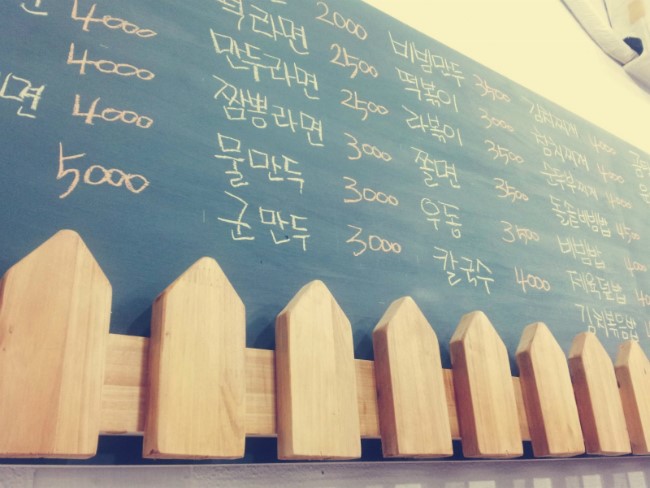 4000
4000
면 4000
5000
떡라면 2000
만두라면 2500
짬뽕라면 2500
물만두 3000
군만두 3000
3000
비빔만두 3500
떡볶이 3000
라볶이 3500
쫄면 3500
우동 3500
칼국수 4000
김치찌개 4000
참치찌개 4000
순두부찌개 4000
돌솥비빔밥 4500
비빔밥
제육덮밥
김치볶음밥